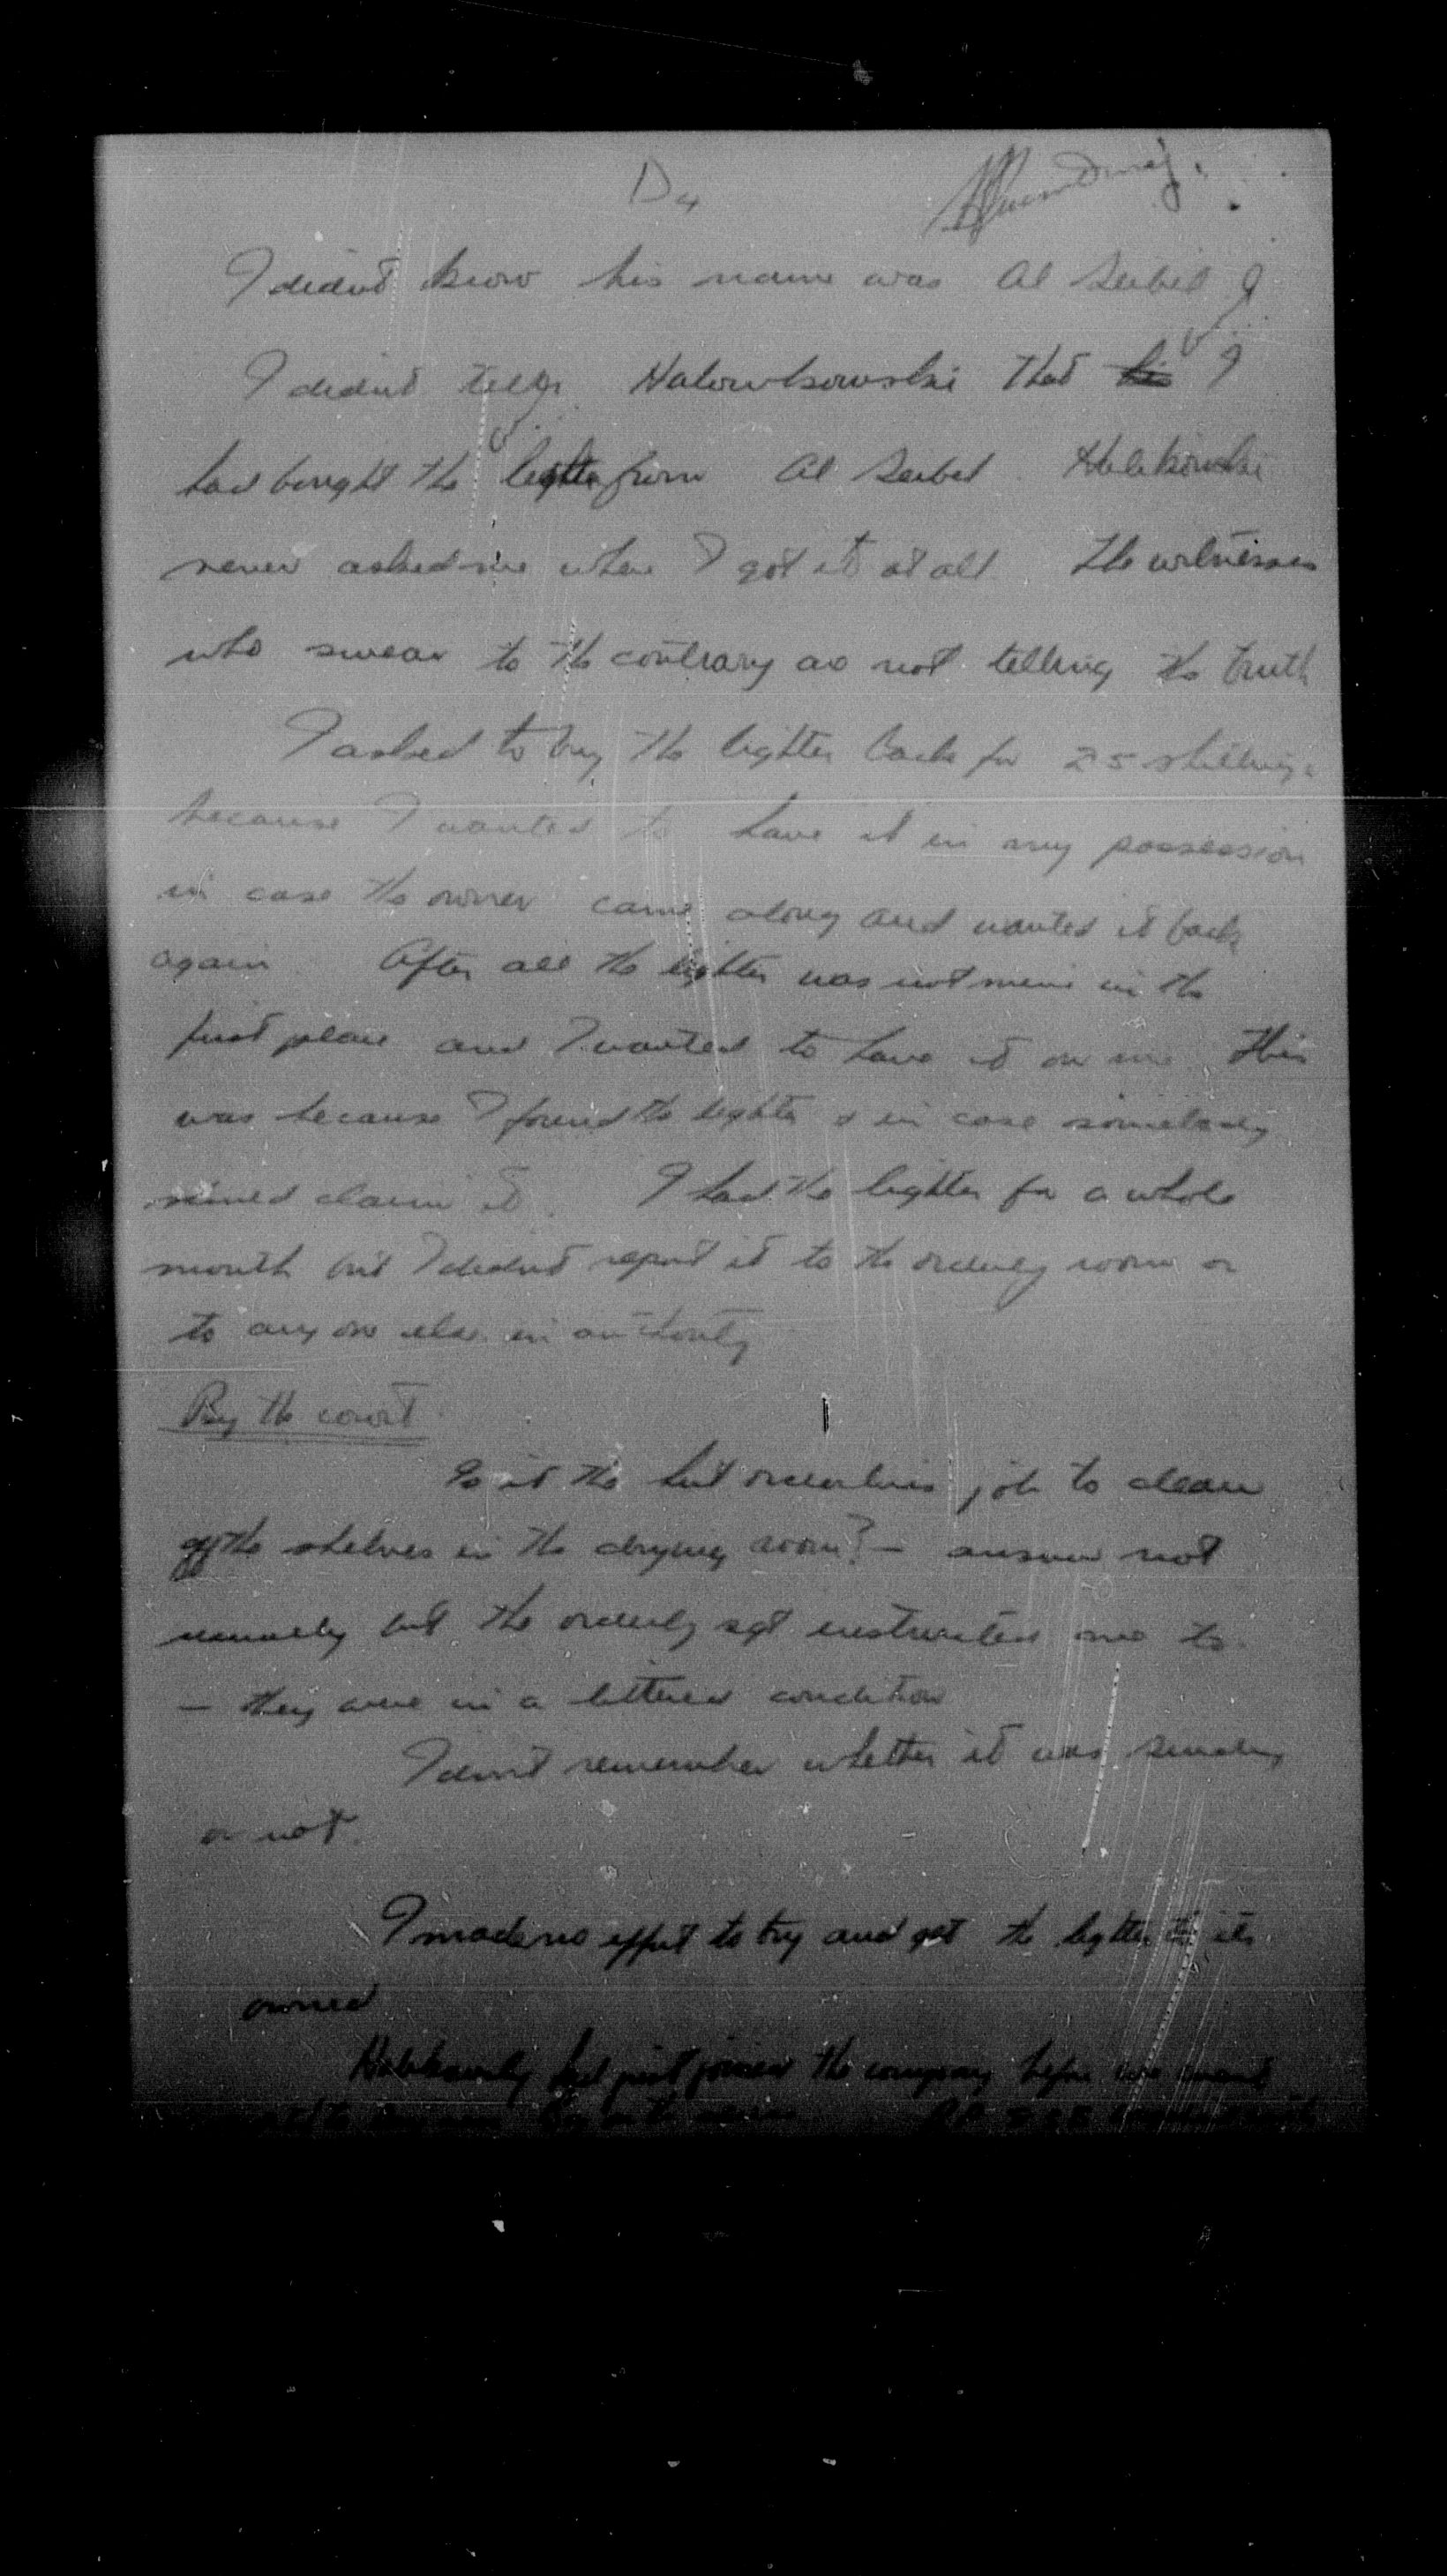 D4
I didnt know his name was Al Seibel I
I didnt tell Halowkowski that his I
had bought the lighter from Al Seibel Halikowski
never asked me where I got it at all The witnesses
who swear to the contrary are not telling the truth
I asked to buy the lighter back for 25 shillings
because I wanted to have it in my possession
in case the owner came along and wanted it back
again After all the lighter was not mine in the
first place and I wanted to have it on me this
was because I found the lighter & in case somebody
claim it. I had the lighter for a whole
month but I didnt report it to the orderly room or
to any one else in authority
By the court
Is it the hut orderlies job to clean
off the shelves in the drying room? – answer not
usually but the orderly sgt instructed me to
– they were in a littered condition
I dont remember whether it was Sunday
or not.
I made no effort to try and get the lighter to its
owner
had just joined the company before